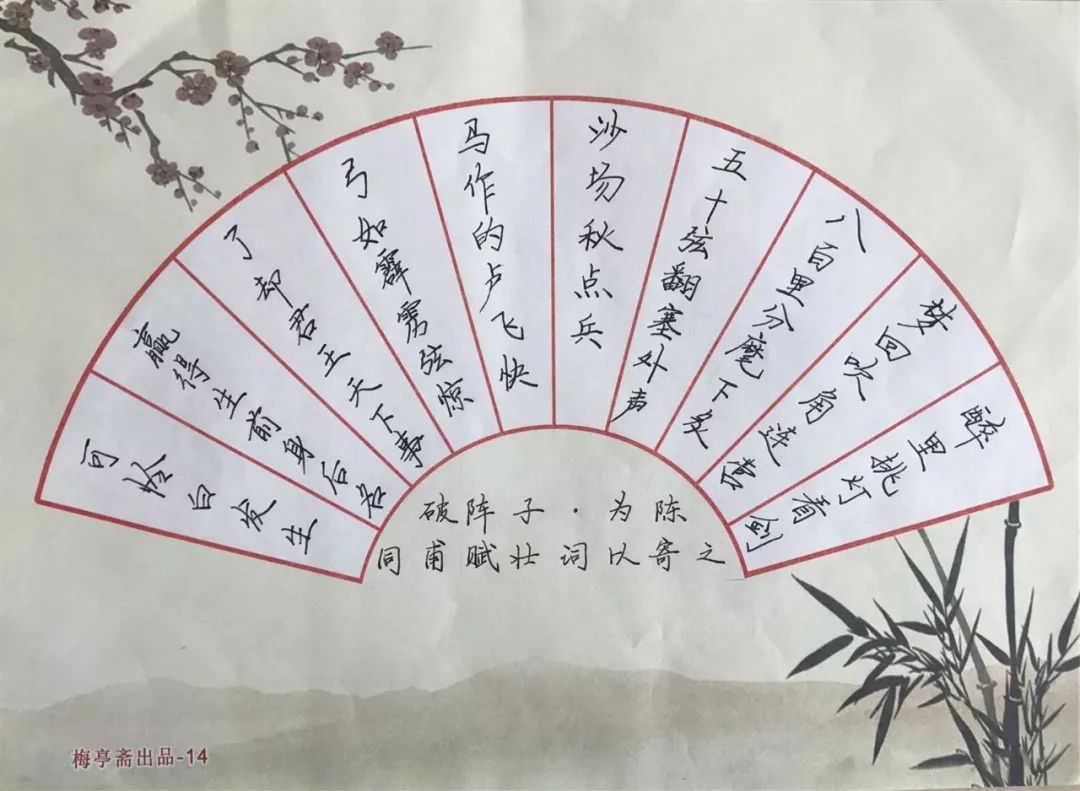 醉里挑灯看剑
梦回吹角连营
八百里分麾下炙
五十弦翻塞外声
沙场秋点兵
马作的卢飞快
弓如霹雳弦惊
了却君王天下事
赢得生前身后名
可怜白发生
破阵子·为陈
同甫赋壮词以寄之
梅亭斋出品-14